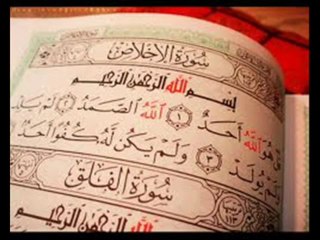 سُورَةُ الإِخْلَاصِ
بِسْمِ اللَّهِ الرَّحْمَٰنِ الرَّحِيمِ
هُوَ اللَّهُ أَحَدٌ ١ اللَّهُ الصَّمَدُ ٢ لَمْ يَلِدْ
وَلَمْ يُولَدْ ٣ وَلَمْ يَكُن لَّهُ كُفُوًا أَحَدٌ
سُورَةُ الْفَلَقِ
بِسْمِ اللَّهِ الرَّحْمَٰنِ الرَّحِيمِ